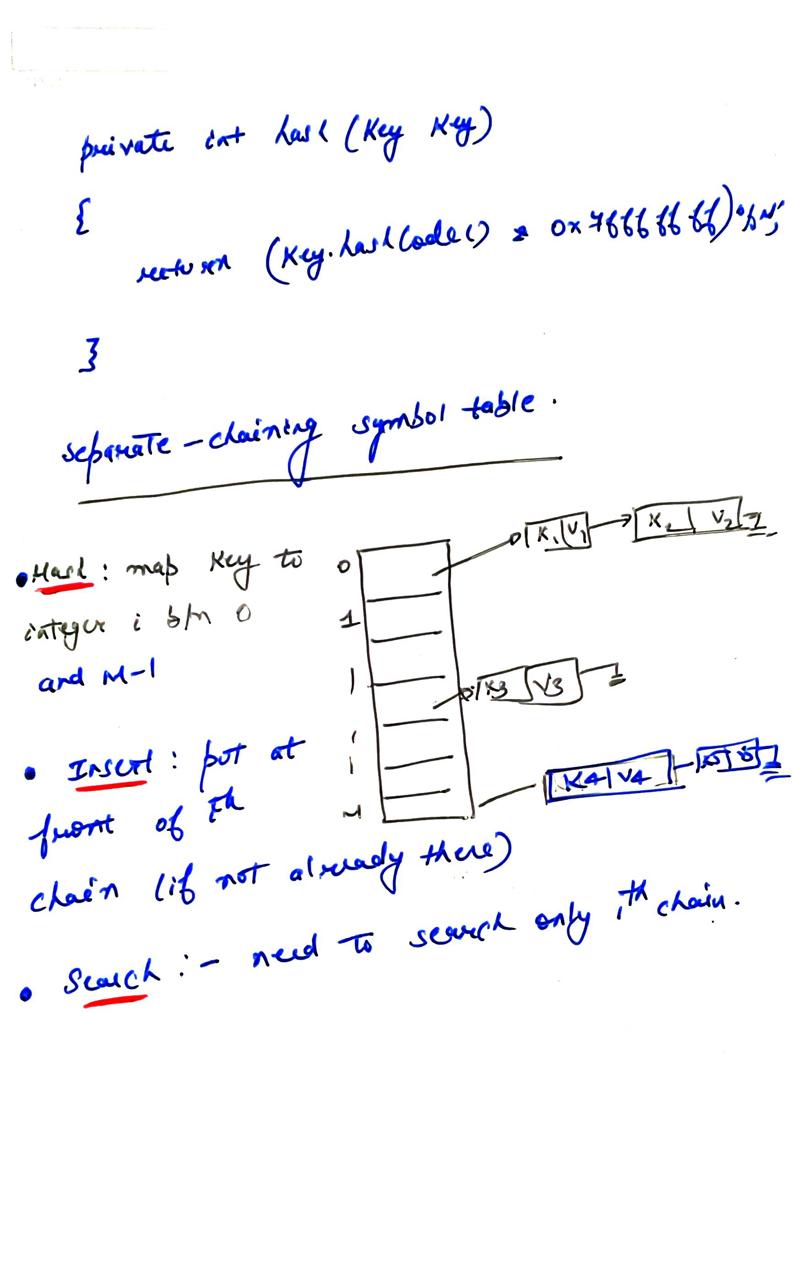 private int hash (Key Key)
{
return (Key.hashCode() & 0x7fffffff)%M;
}
separate-chaining symbol table.
• Hash : map Key to
integer i b/n 0
and M-1
• Insert : put at
front of ith
chain (if not already there)
• Search :- need to search only ith chain.
0
1
M
K1 V1
K2 V2
K3 V3
K4 V4